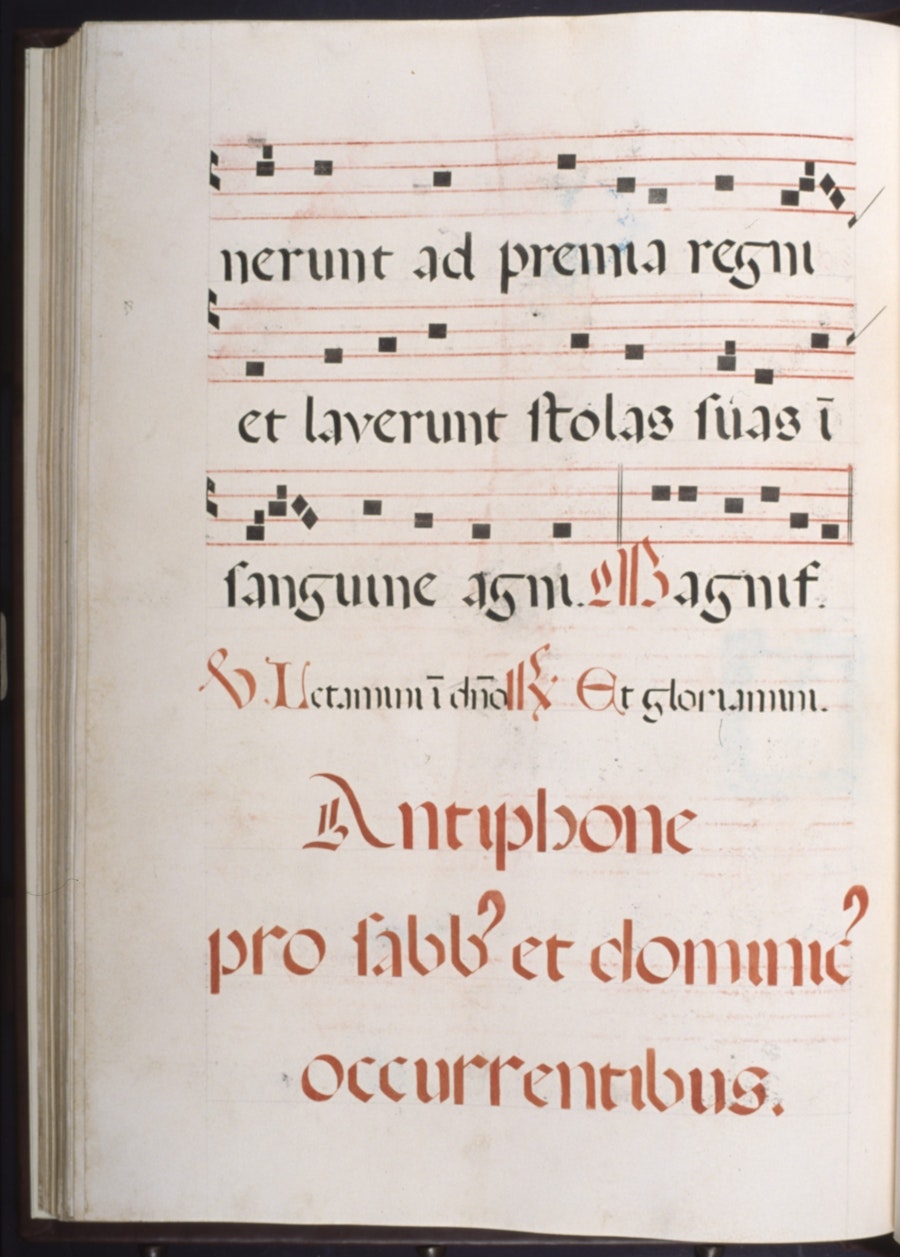 nerunt ad premia regni
et laverunt ſtolas ſuas ī
ſanguine agni. Magnif.
℣. Letamini ī dño ℟ Et gloriamini.
Antiphone
pro ſabbꝰ et dominicꝰ
occurrentibus.